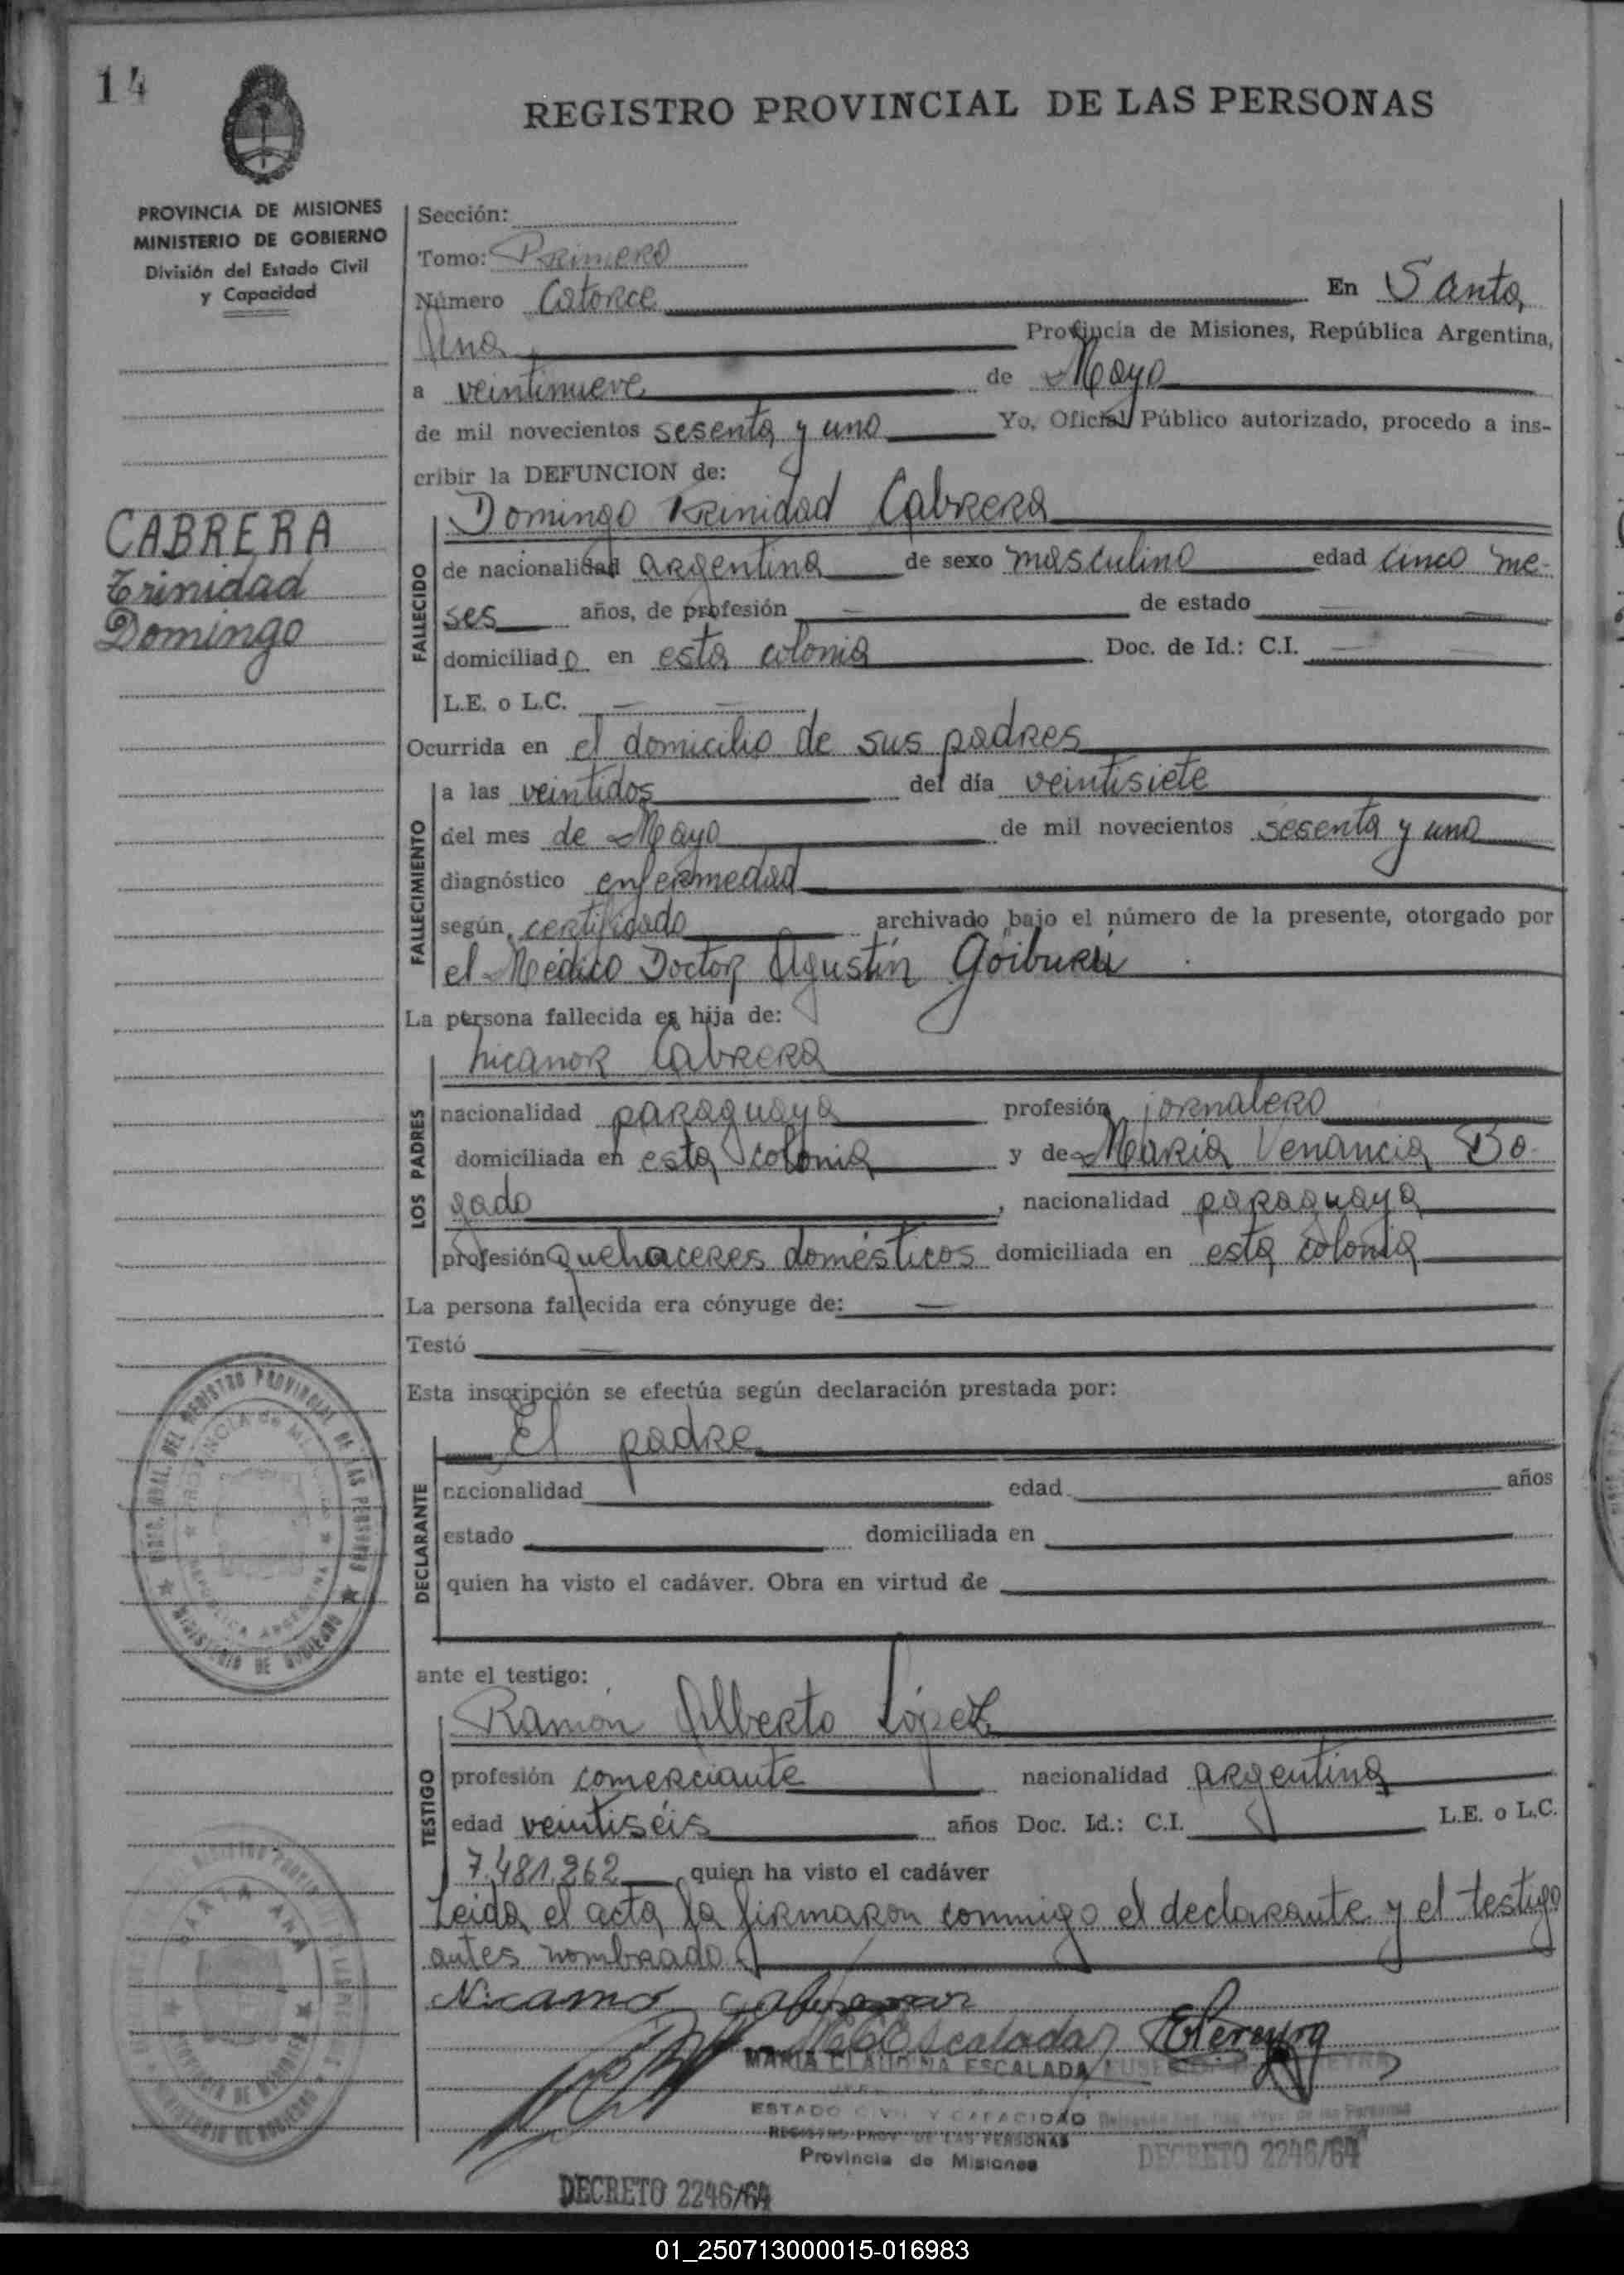 14
REGISTRO PROVINCIAL DE LAS PERSONAS
PROVINCIA DE MISIONES
MINISTERIO DE GOBIERNO
División del Estado Civil
y Capacidad
Sección:
Tomo: Primero
Número Catorce En Santa
Ana Provincia de Misiones, República Argentina,
a veintinueve de Mayo
de mil novecientos sesenta y uno Yo, Oficial Público autorizado, procedo a ins-
cribir la DEFUNCION de:
CABRERA
Trinidad
Domingo
FALLECIDO
Domingo Trinidad Cabrera
de nacionalidad argentina de sexo masculino edad cinco me-
ses años, de profesión — de estado —
domiciliado en esta colonia Doc. de Id.: C.I. —
L.E. o L.C. — —
Ocurrida en el domicilio de sus padres
FALLECIMIENTO
a las veintidos del día veintisiete
del mes de Mayo de mil novecientos sesenta y uno
diagnóstico enfermedad
según certificado archivado bajo el número de la presente, otorgado por
el Médico Doctor Agustín Goiburú
La persona fallecida es hija de:
LOS PADRES
Nicanor Cabrera
nacionalidad paraguaya profesión jornalero
domiciliada en esta colonia y de María Venancia Bo-
gado, nacionalidad paraguaya
profesión quehaceres domésticos domiciliada en esta colonia
La persona fallecida era cónyuge de: —
Testó —
Esta inscripción se efectúa según declaración prestada por:
DECLARANTE
El padre
nacionalidad edad años
estado domiciliada en
quien ha visto el cadáver. Obra en virtud de
ante el testigo:
TESTIGO
Ramón Alberto López
profesión comerciante nacionalidad argentina
edad veintiséis años Doc. Id.: C.I. L.E. o L.C.
7.481.262 quien ha visto el cadáver
Leida el acta la firmaron conmigo el declarante y el testigo
antes nombrado
DIREC. GRAL. DEL REGISTRO PROVINCIAL DE LAS PERSONAS
PROVINCIA de MISIONES
REPUBLICA ARGENTINA
MINISTERIO DE GOBIERNO
SANTA ANA
PROVINCIA DE MISIONES
MINISTERIO DE GOBIERNO
Nicanor Cabrera
Escalada Pereyra
MARIA CLAUDINA ESCALADA
ESTADO CIVIL Y CAPACIDAD
REGISTRO PROV. DE LAS PERSONAS
Provincia de Misiones
DECRETO 2246/64
DECRETO 2246/64
01_250713000015-016983